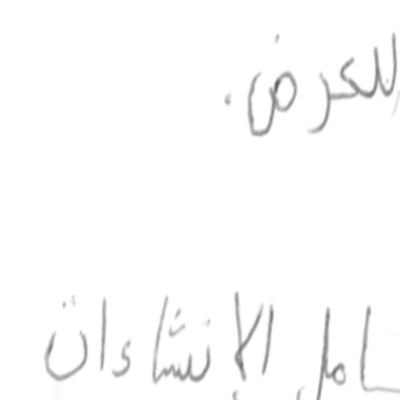 للعرض.
عامل الإنشاءات